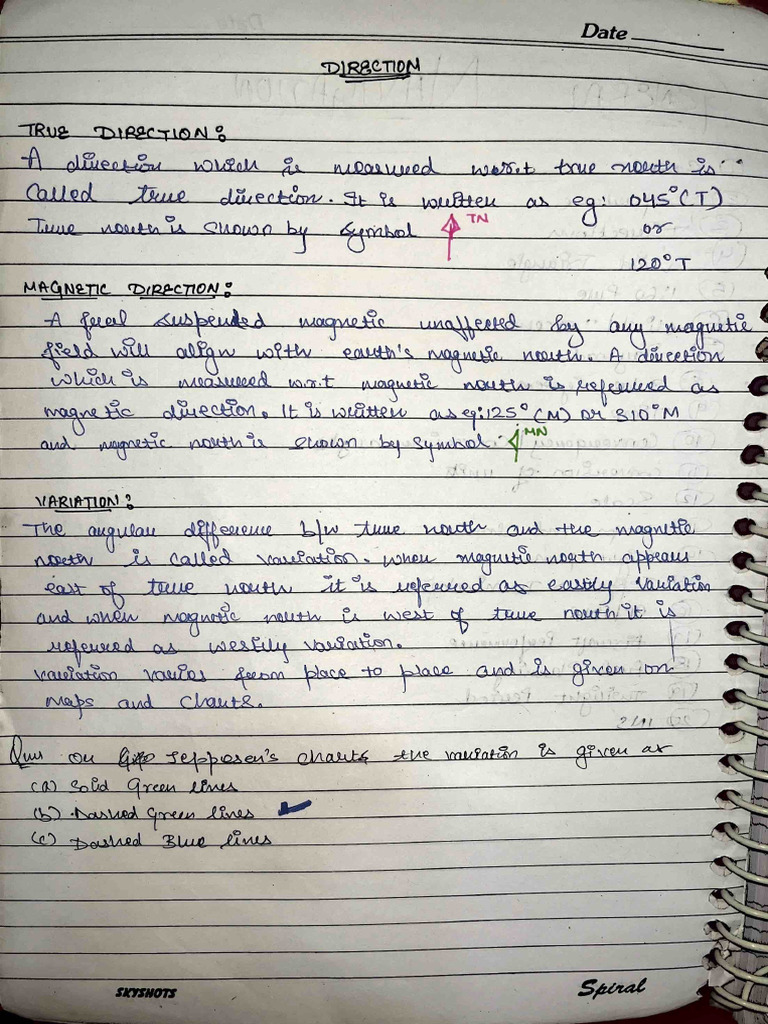 Date
DIRECTION
TRUE DIRECTION:
A direction which is measured w.r.t true north is
called true direction. It is written as eg: 045°(T)
True north is shown by symbol TN or
120°T
MAGNETIC DIRECTION:
A freel suspended magnetic unaffected by any magnetic
field will align with earth's magnetic north. A direction
which is measured w.r.t magnetic north is referred as
magnetic direction. It is written as eg: 125°(M) or 310°M
and magnetic north is shown by symbol: MN
VARIATION:
The angular difference b/w true north and the magnetic
north is called variation. when magnetic north appears
east of true north it is referred as eastly variation
and when magnetic north is west of true north it is
referred as westily variation.
variation varies from place to place and is given on
maps and charts.
Ques on Jepposen's charts the variation is given as
(a) Solid Green lines
(b) Dashed Green lines
(c) Dashed Blue lines
SKYSHOTS
Spiral